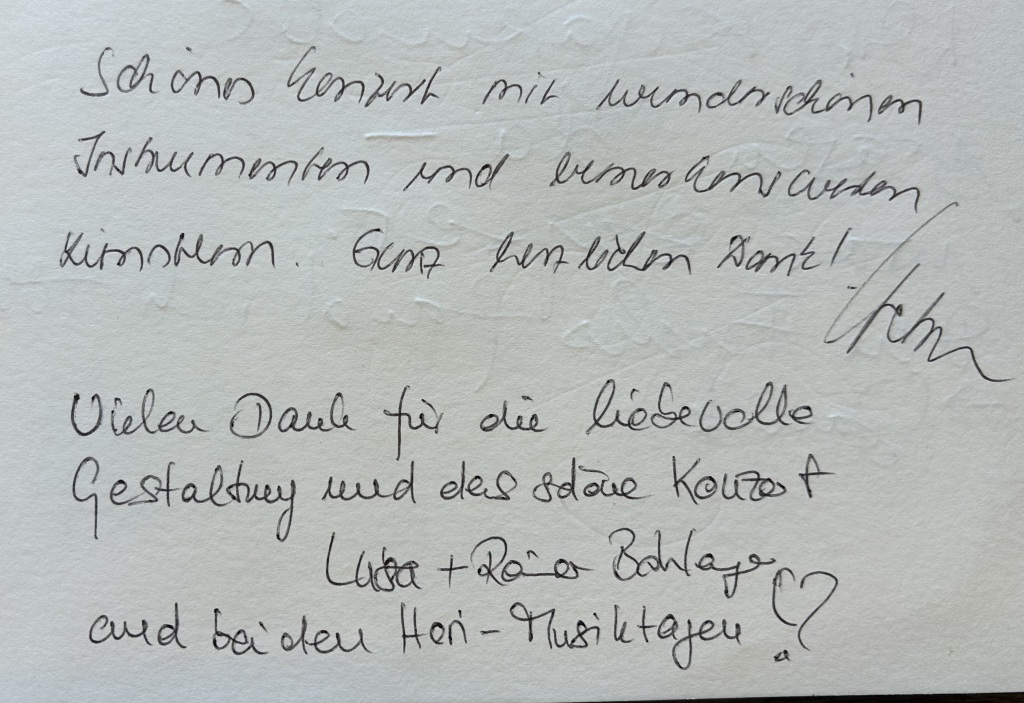 Schönes Konzert mit wunderschönen
Instrumenten und bemerkenswerten
Künstlern. Ganz herzlichen Dank!
Vielen Dank für die liebevolle
Gestaltung und das schöne Konzert
+ Rainer Bohlage
und bei den Hori-Musiktagen